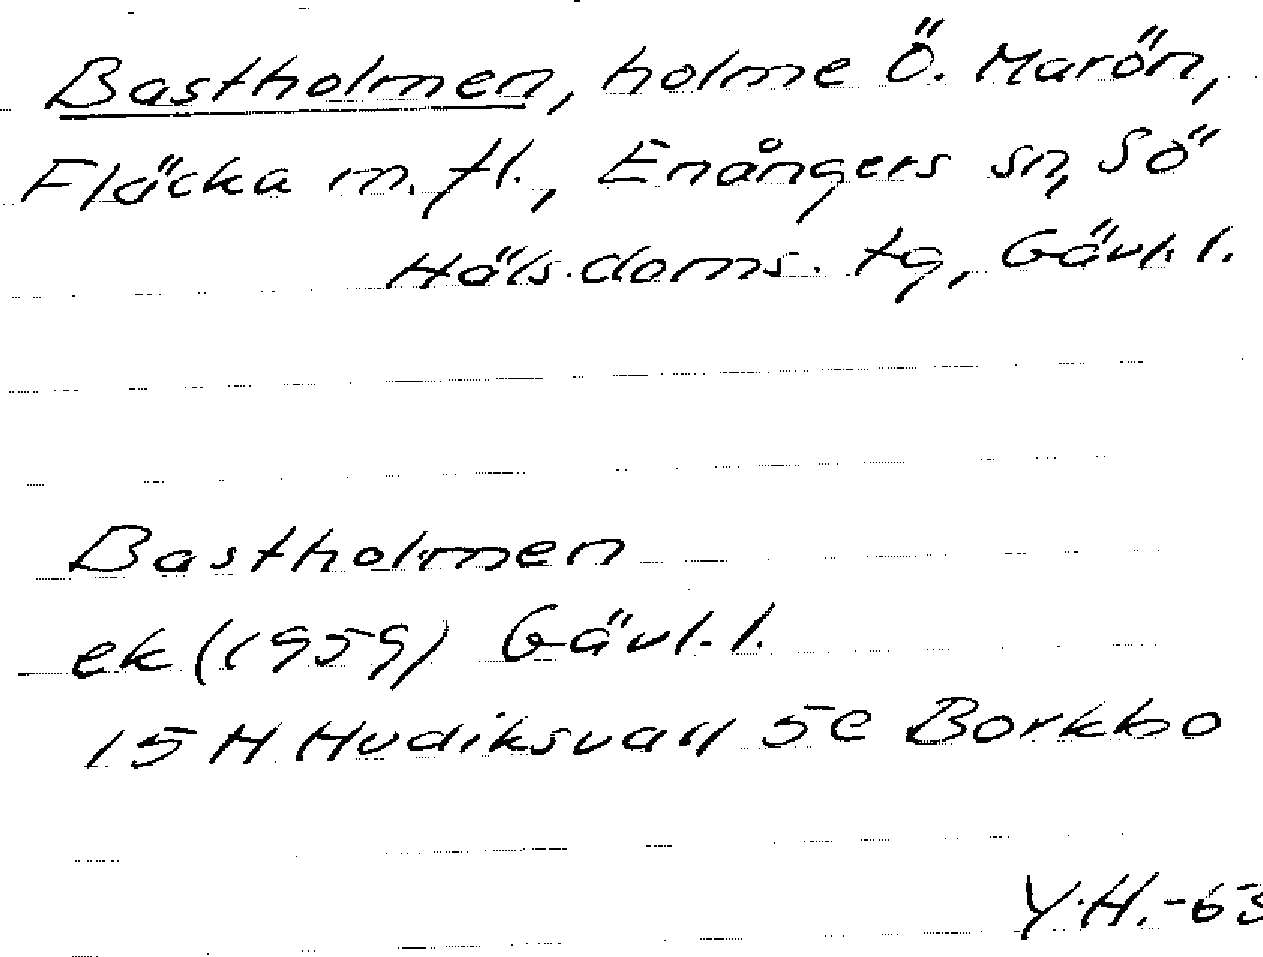 Bastholmen, holme Ö. Marön,
Fläcka m. fl., Enångers sn, Sö
Häls. doms. tg, Gävl. l.
Bastholmen
ek (1959) Gävl. l.
15 H Hudiksvall 5e Borkbo
Y.H.-63